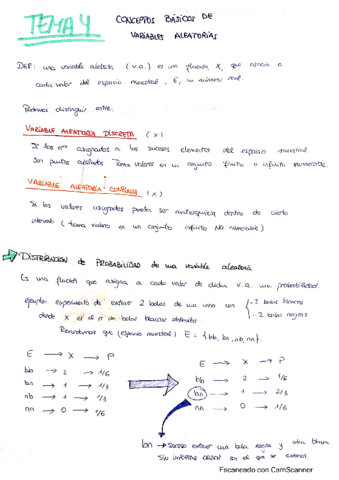 TEMA 4
CONCEPTOS BÁSICOS DE
VARIABLES ALEATORIAS
DEF: una variable aleatoria (v.a.) es una función X, que asocia a
cada valor del espacio muestral, E, un número real.
Podemos distinguir entre:
VARIABLE ALEATORIA DISCRETA (x)
Si los nos asignados a los sucesos elementos del espacio muestral
Son puntos aislados Toman valores en un conjunto finito o infinito numerable.
VARIABLE ALEATORIA CONTINUA (x)
Si los valores asignados pueden ser cualesquiera dentro de cierto
intervalo (toma valores en un conjunto infinito NO numerable)
DISTRIBUCIÓN de PROBABILIDAD de una variable aleatoria.
Es una función que asigna a cada valor de dicha v.a. una probabilidad.
ejemplo: experimento de extraer 2 bolas de una urna con
- 2 bolas blancas
- 2 bolas negras
donde x es el nº de bolas blancas obtenidas.
Recordamos que (espacio muestral) E = {bb, bn, nb, nn}.
E → X → P
bb → 2 → 1/6
bn → 1 → 1/3
nb → 1 → 1/3
nn → 0 → 1/6
E → X → P
bb → 2 → 1/6
bn → 1 → 2/3
nn → 0 → 1/6
bn → Suceso extraer una bola negra y otra blanca
SIN IMPORTAR ORDEN en el que se extraen.
Escaneado con CamScanner